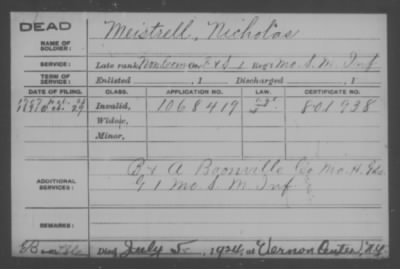 DEAD
Meistrell, Nicholas
NAME OF SOLDIER:
SERVICE: Late rank, Co. F & S 1 Reg't Mo. S. M. Inf
TERM OF SERVICE: Enlisted , 1 Discharged , 1
DATE OF FILING. CLASS. APPLICATION NO. LAW. CERTIFICATE NO.
Invalid, 1068419 801938
Widow,
Minor,
ADDITIONAL SERVICES: B & A Boonville Mo. H. Gds.
G 1 Mo. S. M. Inf
REMARKS:
Died July 5, 1924, at Vernon Center, N.Y.